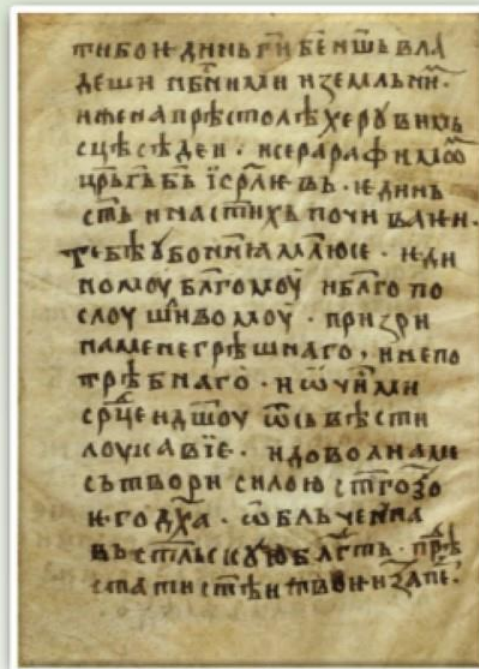 ти бо ѥдинь г҃и б҃е н҃шь вла
деши нб҃ними и земльни·
иже на прѣстолѣ херꙋвимь
сцѣ сѣдеи · и серарафимѡ҃
цр҃ь г҃ь б҃ь їср҃лѥвь · ѥдинь
ст҃ь и на ст҃ихь почиваѥи·
тебѣ ꙋбо н҃нꙗ мл҃юсе · ѥди
номоу бл҃гомоу и бл҃гопо
слоушивомоу · призри
на мене грѣшнаго, и непо
трѣбнаго · и ѡчи҃ми
ср҃це и дш҃оу ѿ сьвѣсти
лоукавїе · и довол на ме
сьтвори силою ст҃го
ѥго дх҃а · ѡбльченна
вь ст҃льскꙋю бл҃гть · прѣⷣ
стати ст҃ѣи твоѥи